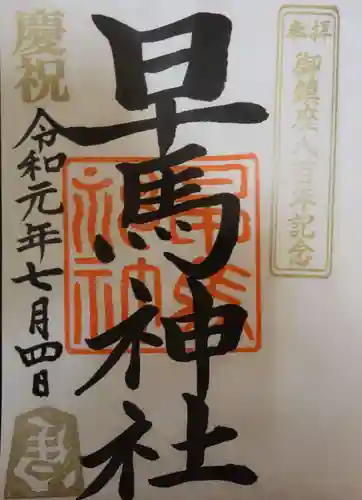 奉拝
御鎮座八百年記念
早馬神社
慶祝
令和元年七月四日